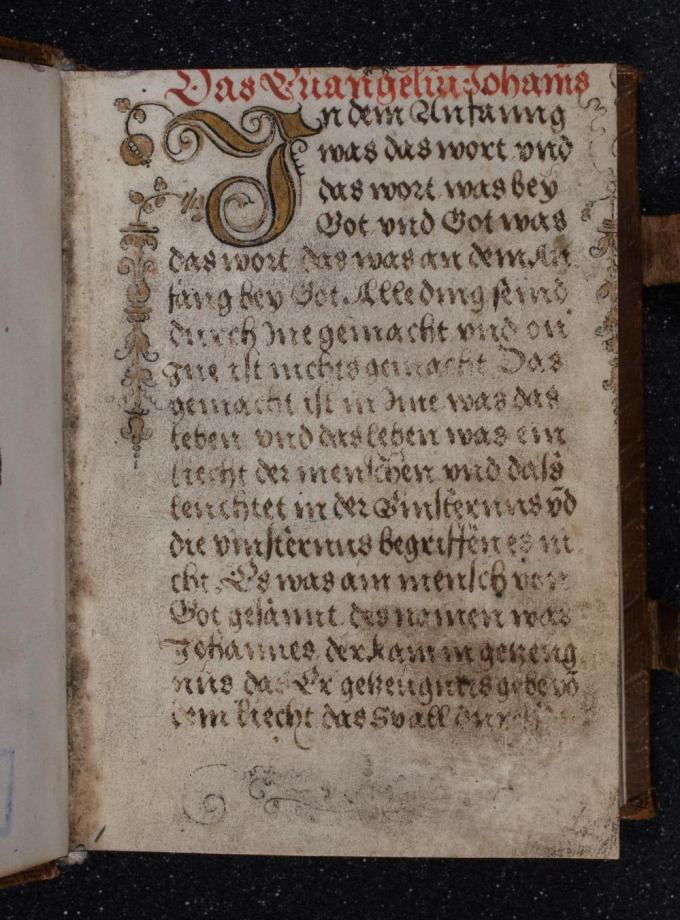 Das Euangeliū Johanīs
In dem Anfanng
was das wort vnd
das wort was bey
Got vnd Got was
das wort das was an dem An
fang bey Got Alle ding seind
durch Ine gemacht vnd on
Ine ist nichts gemacht Das
gemacht ist in Ime was das
leben vnd das leben was ein
liecht der menschen vnd dass
leuchtet in der vinsternus vñd
die vinsternus begriffen es ni
cht Es was ain mensch von
Got gesannt des namen was
Johannes der kam in gezeug
nus das Er gezeugnus gebe võ
dem liecht das Sy all durch